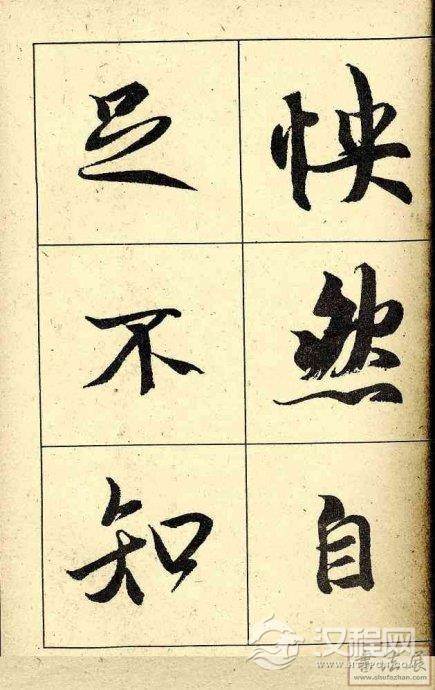 怏然自
足不知
汉程网
www.shufazhan.com